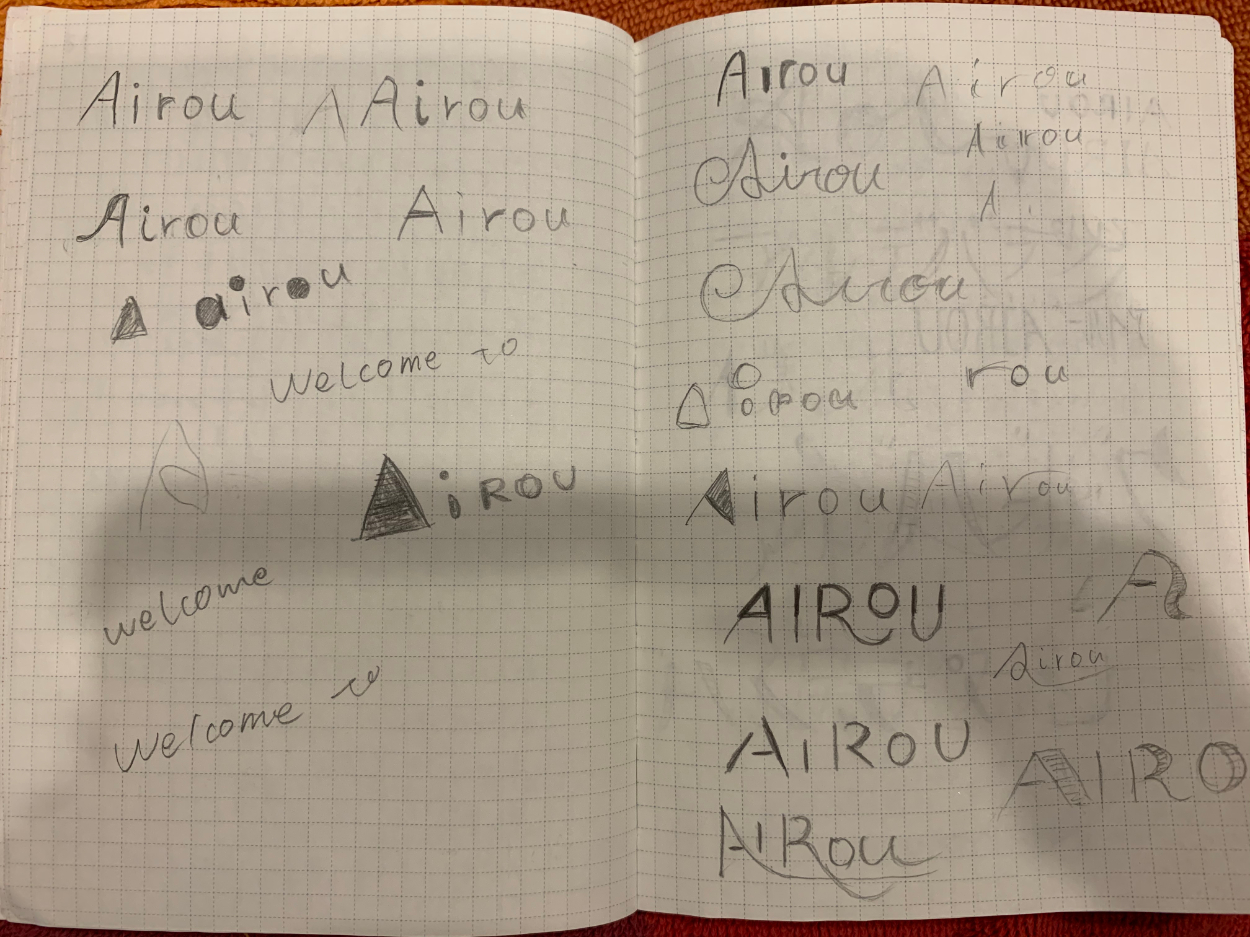 Airou A Airou
Airou Airou
A airou
Welcome to
A
AiROU
welcome
Welcome to
Airou Airou
Airou
Airou
A
Airou
rou
Airou
Airou Airou
AIROU
A
Airou
AiRoU
AIRO
AIRou